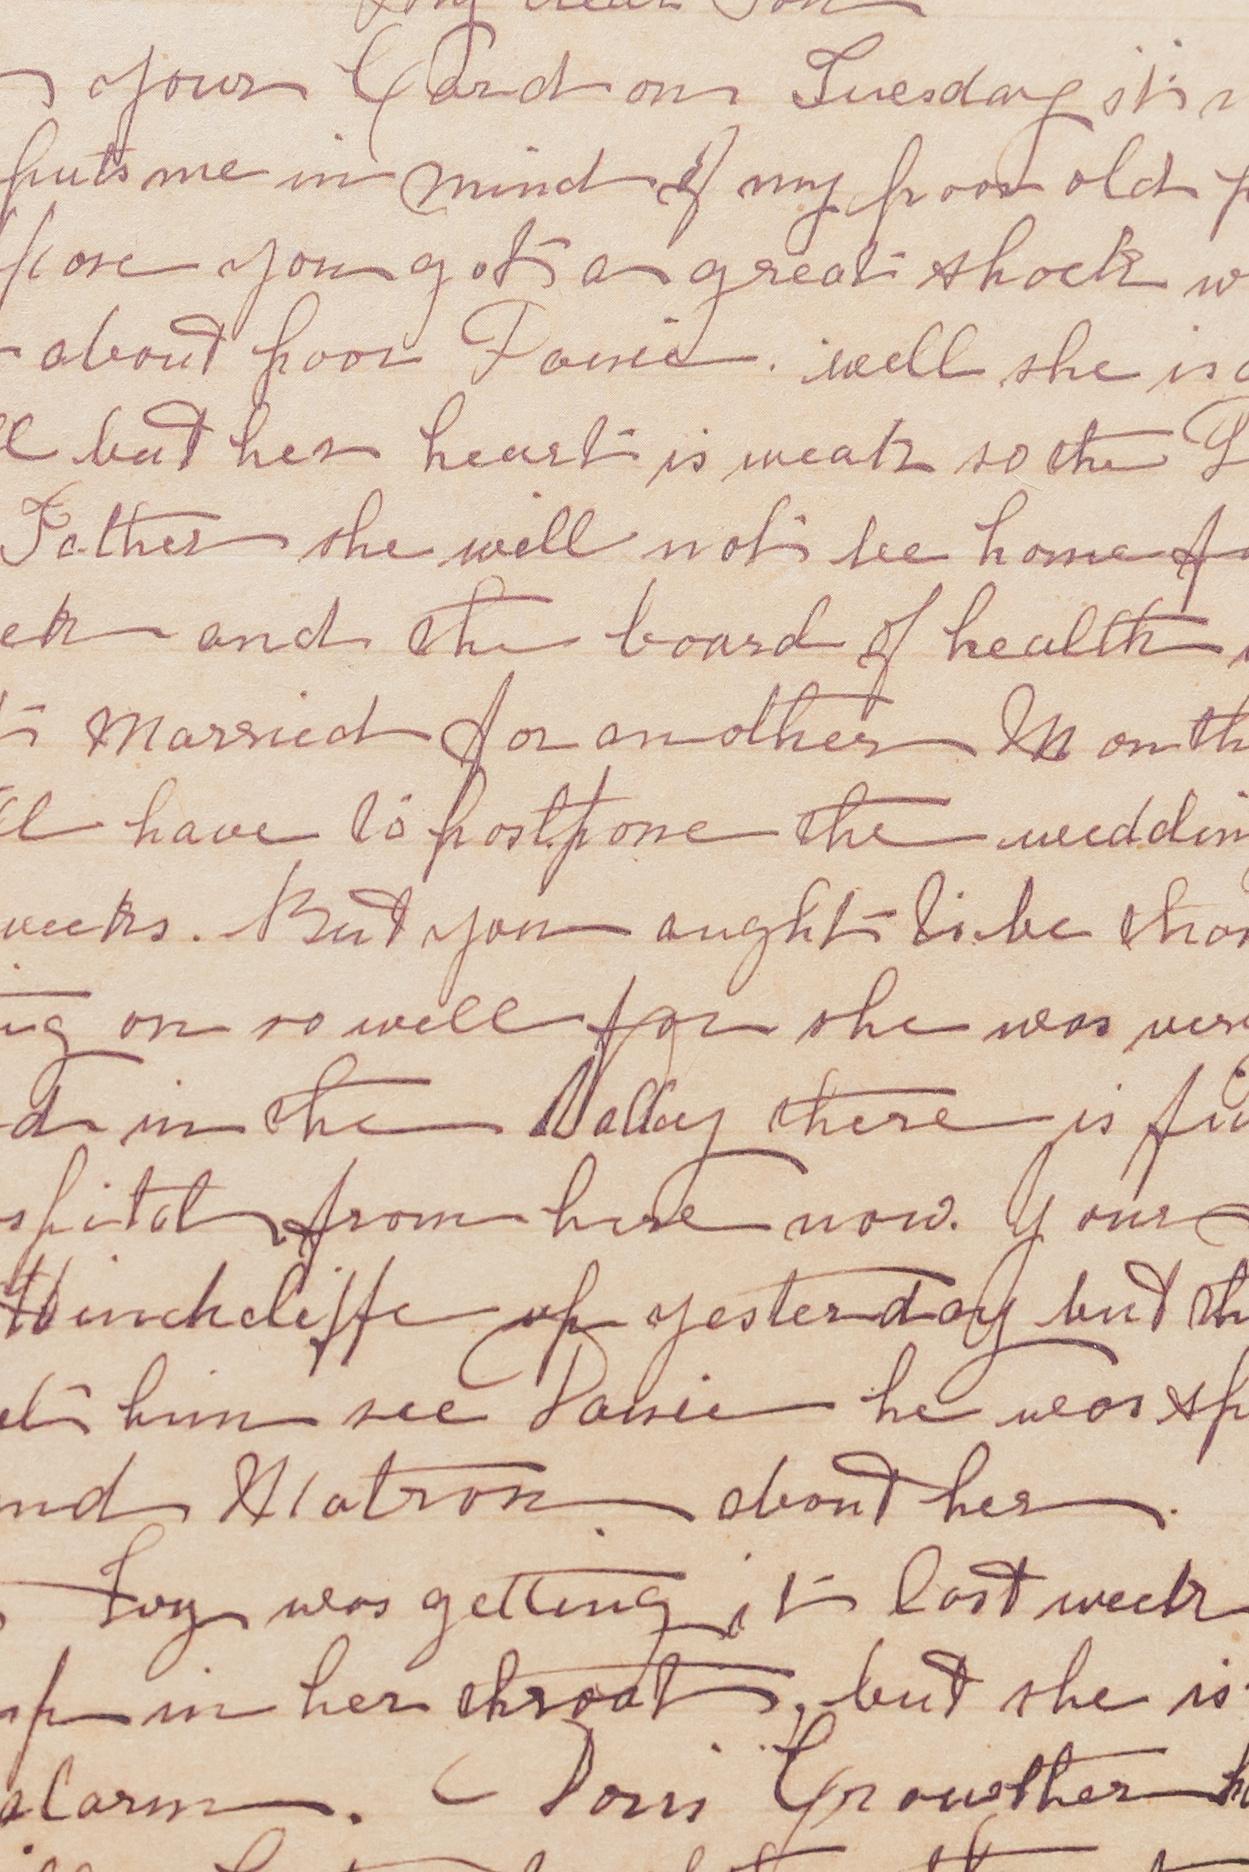 My dear Son
your Card on Tuesday it
puts me in mind of my poor old
pose you got a great shock w
about poor Janie. well she is
ll but her heart is weak so the D
Father she will not be home fo
ek and the board of health
t Married for another Month
ll have to postpone the weddin
weeks. But you aught to be than
ing on so well for she was very
d in the Valley there is fi
spital from here now. Your
Hinchcliffe up yesterday but th
et him see Janie he was sp
and Matron about her.
Ivy was getting it last week
up in her throat, but she is
alarm. Doris Crowther h